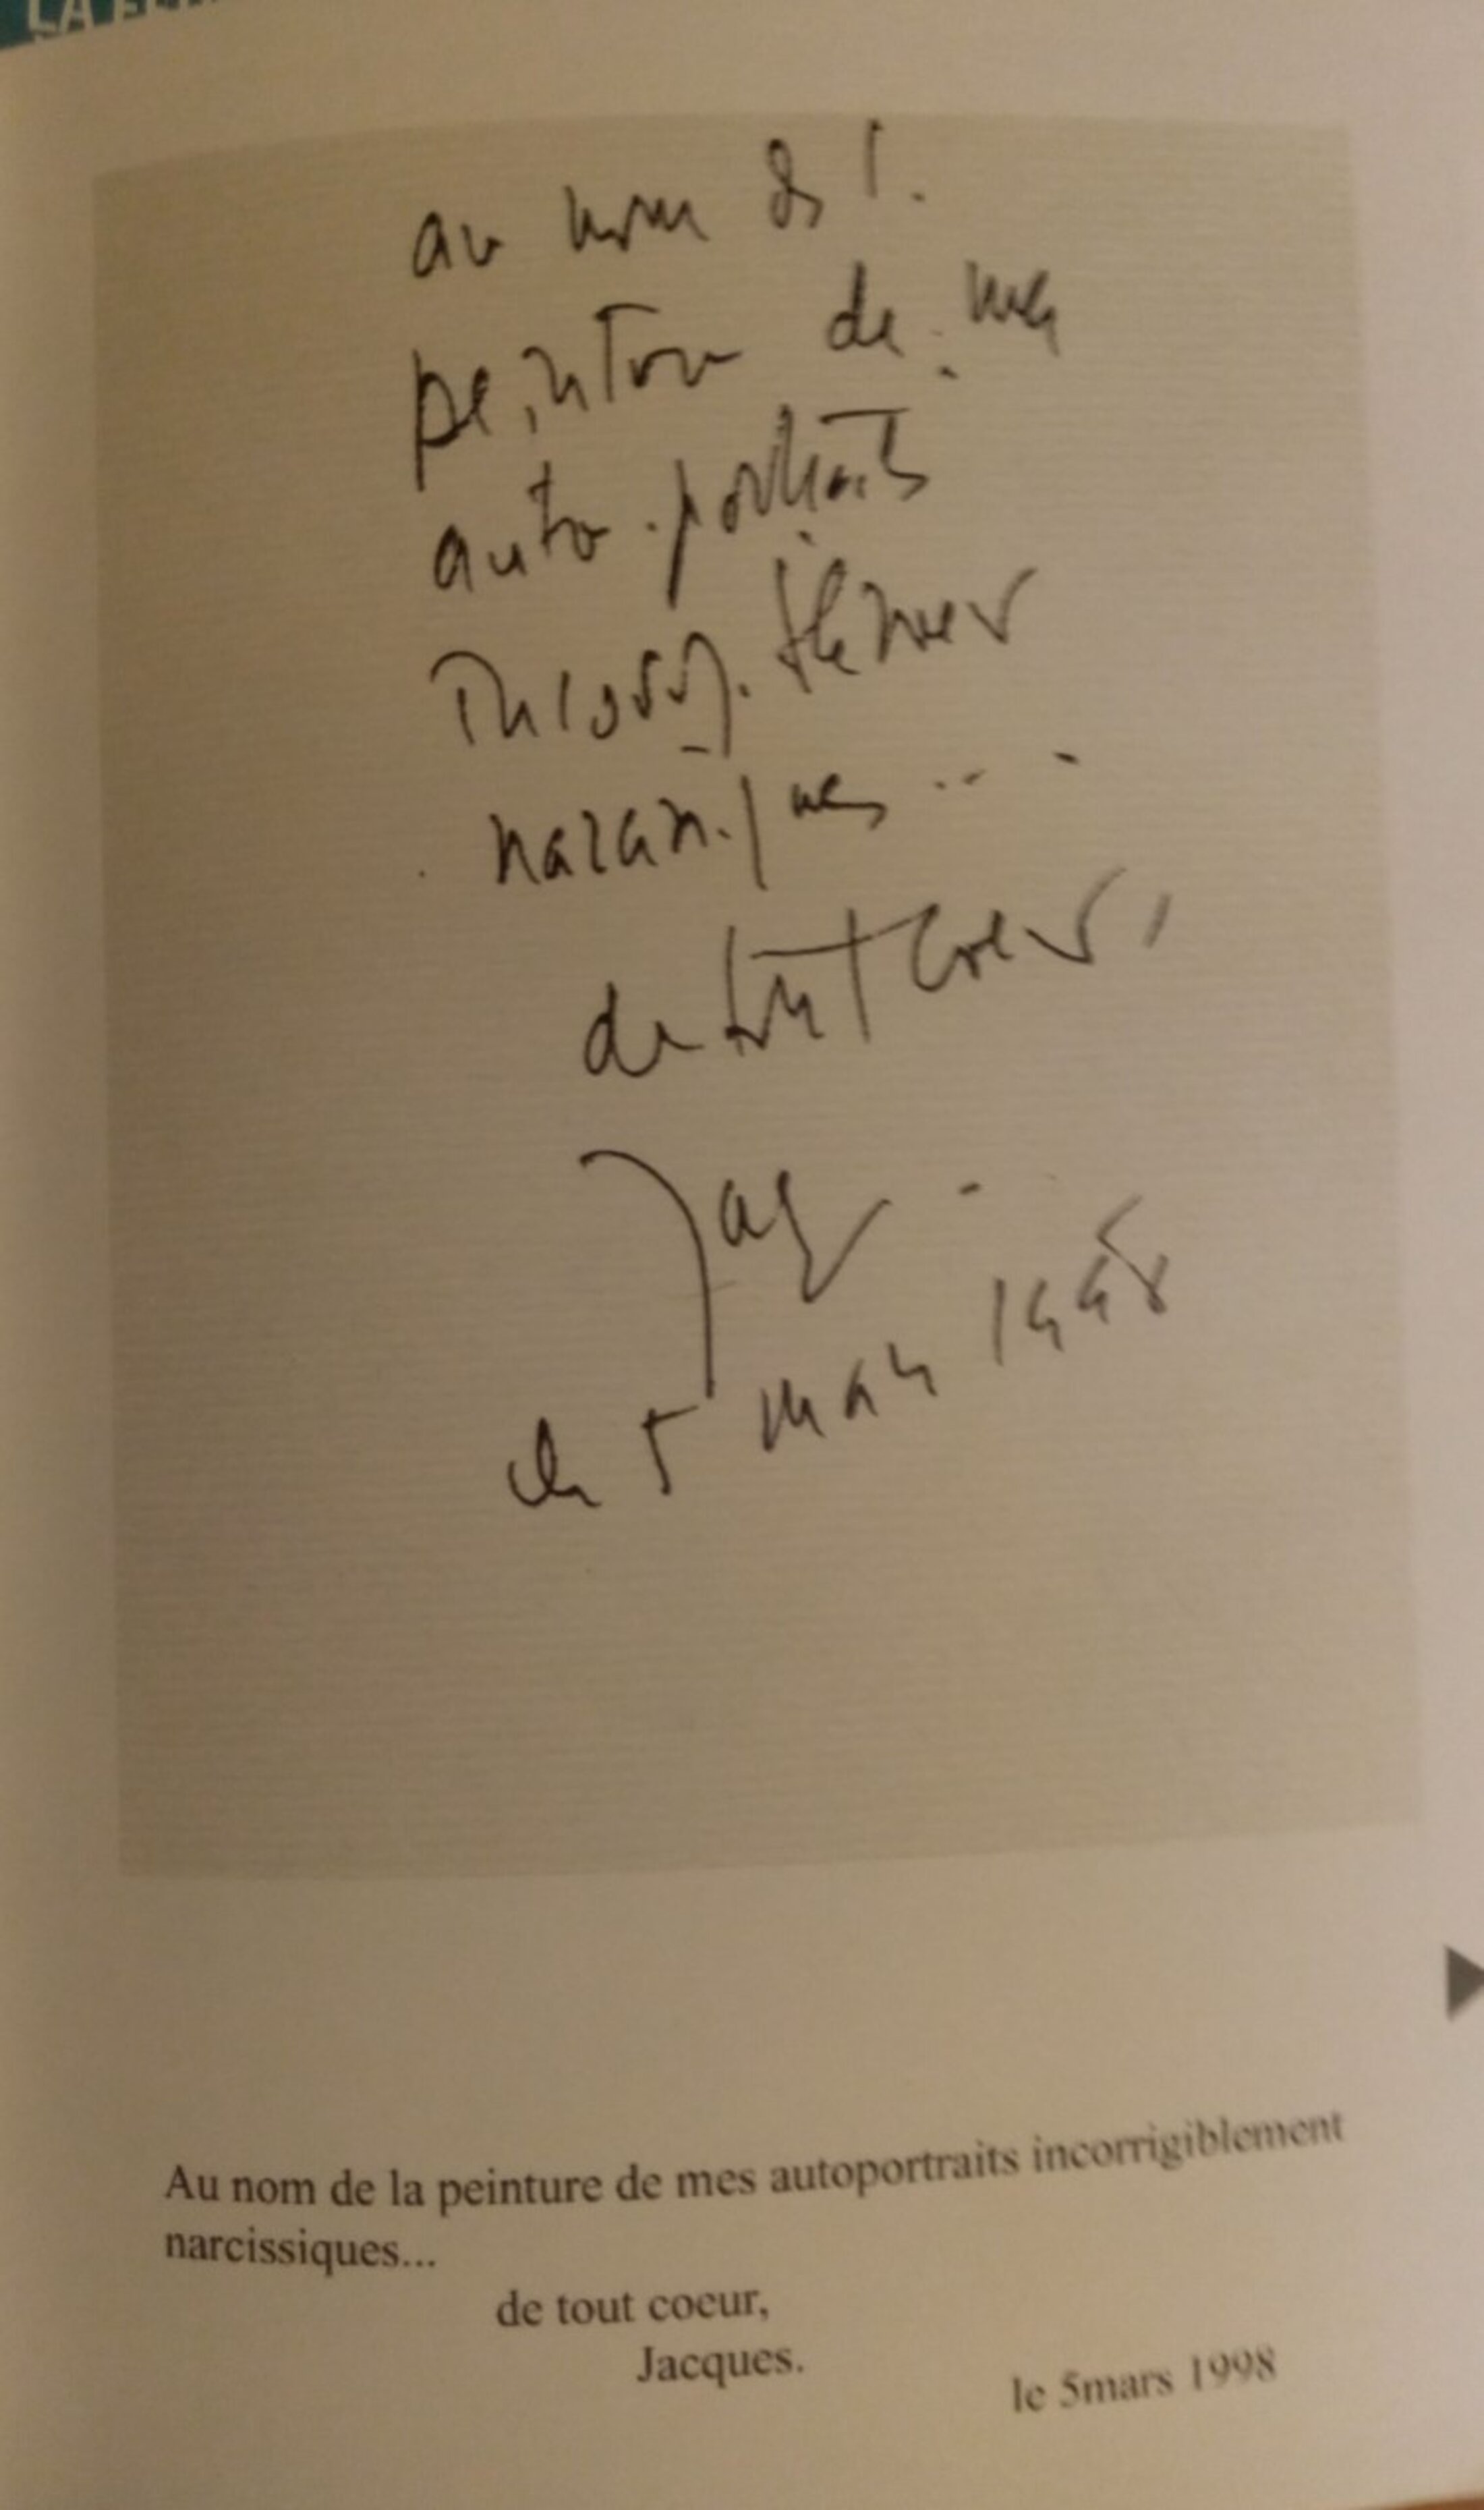 au nom de l.
peinture de mes
auto-portraits
narcissiques...
de tout coeur,
Jacq
le 5 mars 1998
Au nom de la peinture de mes autoportraits incorrigiblement
narcissiques...
de tout coeur,
Jacques.
le 5mars 1998